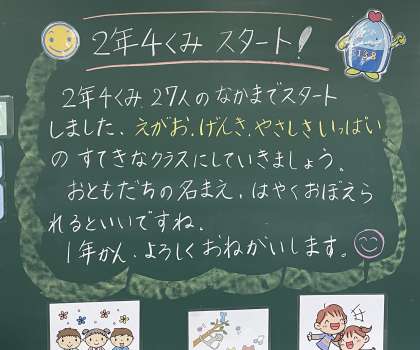 2年4くみ スタート!
2年4くみ、27人のなかまでスタート
しました。えがお、げんき、やさしさいっぱい
のすてきなクラスにしていきましょう。
おともだちの名まえ、はやくおぼえら
れるといいですね。
1年かん、よろしくおねがいします。